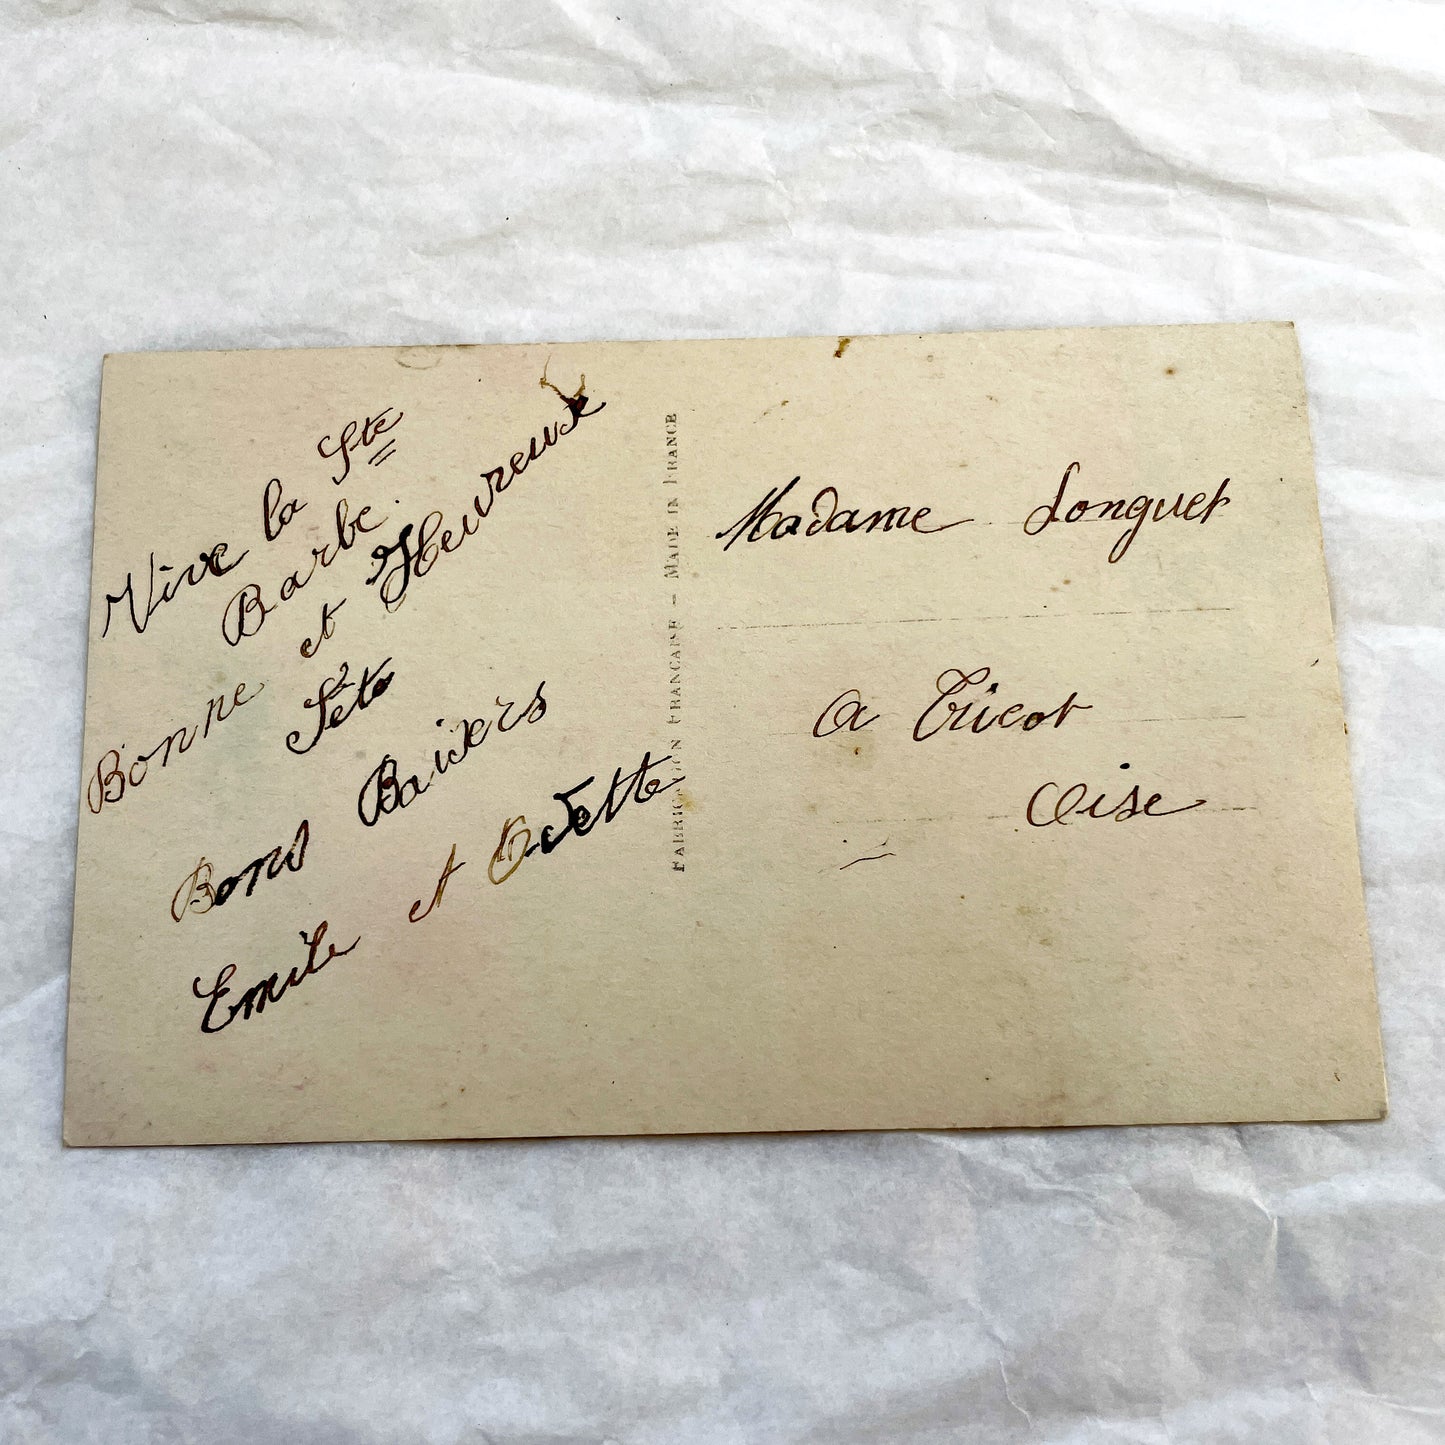 Vive la Ste
Barbe.
Bonne et Heureuse
Fête
Bons Baisers
Emile et Odette
FABRICATION FRANCAISE – MADE IN FRANCE
Madame Longuet
a Tricot
Oise